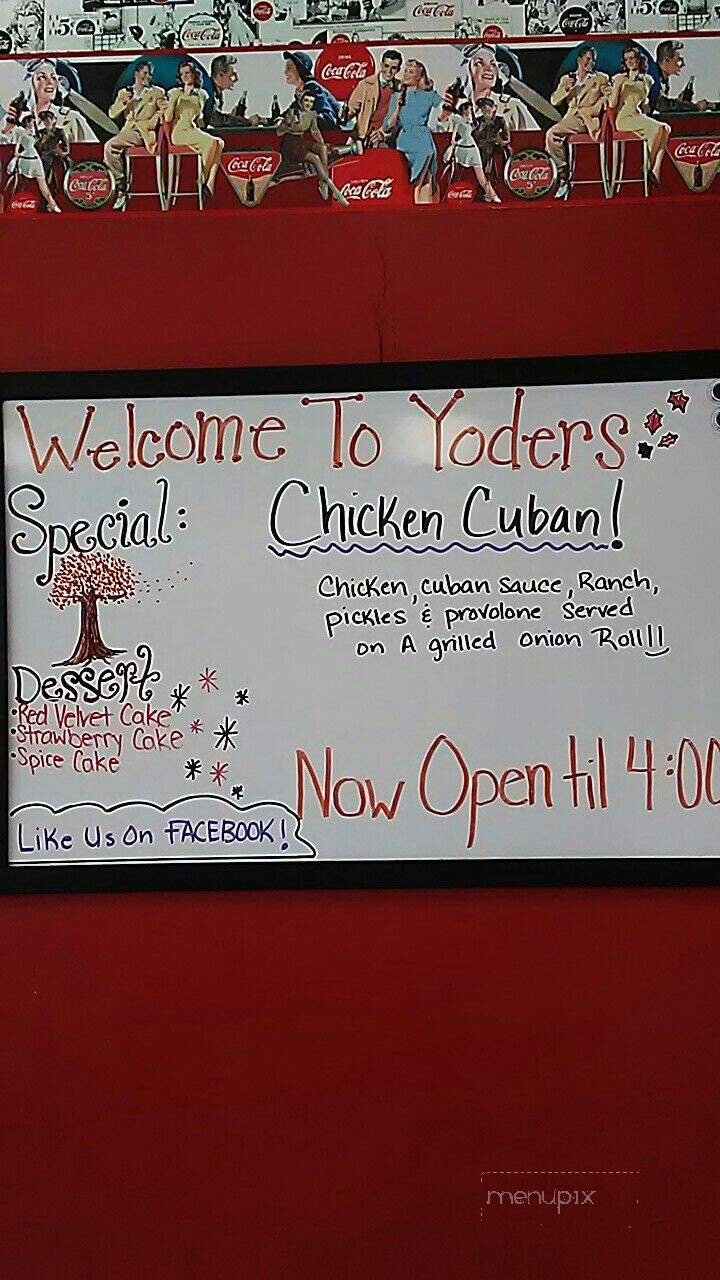 Coca-Cola
Coca-Cola
Coca-Cola
DRINK
Coca-Cola
Coca-Cola
Coca-Cola
Coca-Cola
Coca-Cola
Coca-Cola
5¢
Welcome To Yoders
Special:
Chicken Cuban!
Chicken, cuban sauce, Ranch,
pickles & provolone Served
on A grilled onion Roll!!
Dessert
•Red Velvet Cake
•Strawberry Cake
•Spice Cake
Now Open til 4:00
Like Us On FACEBOOK!
menupix